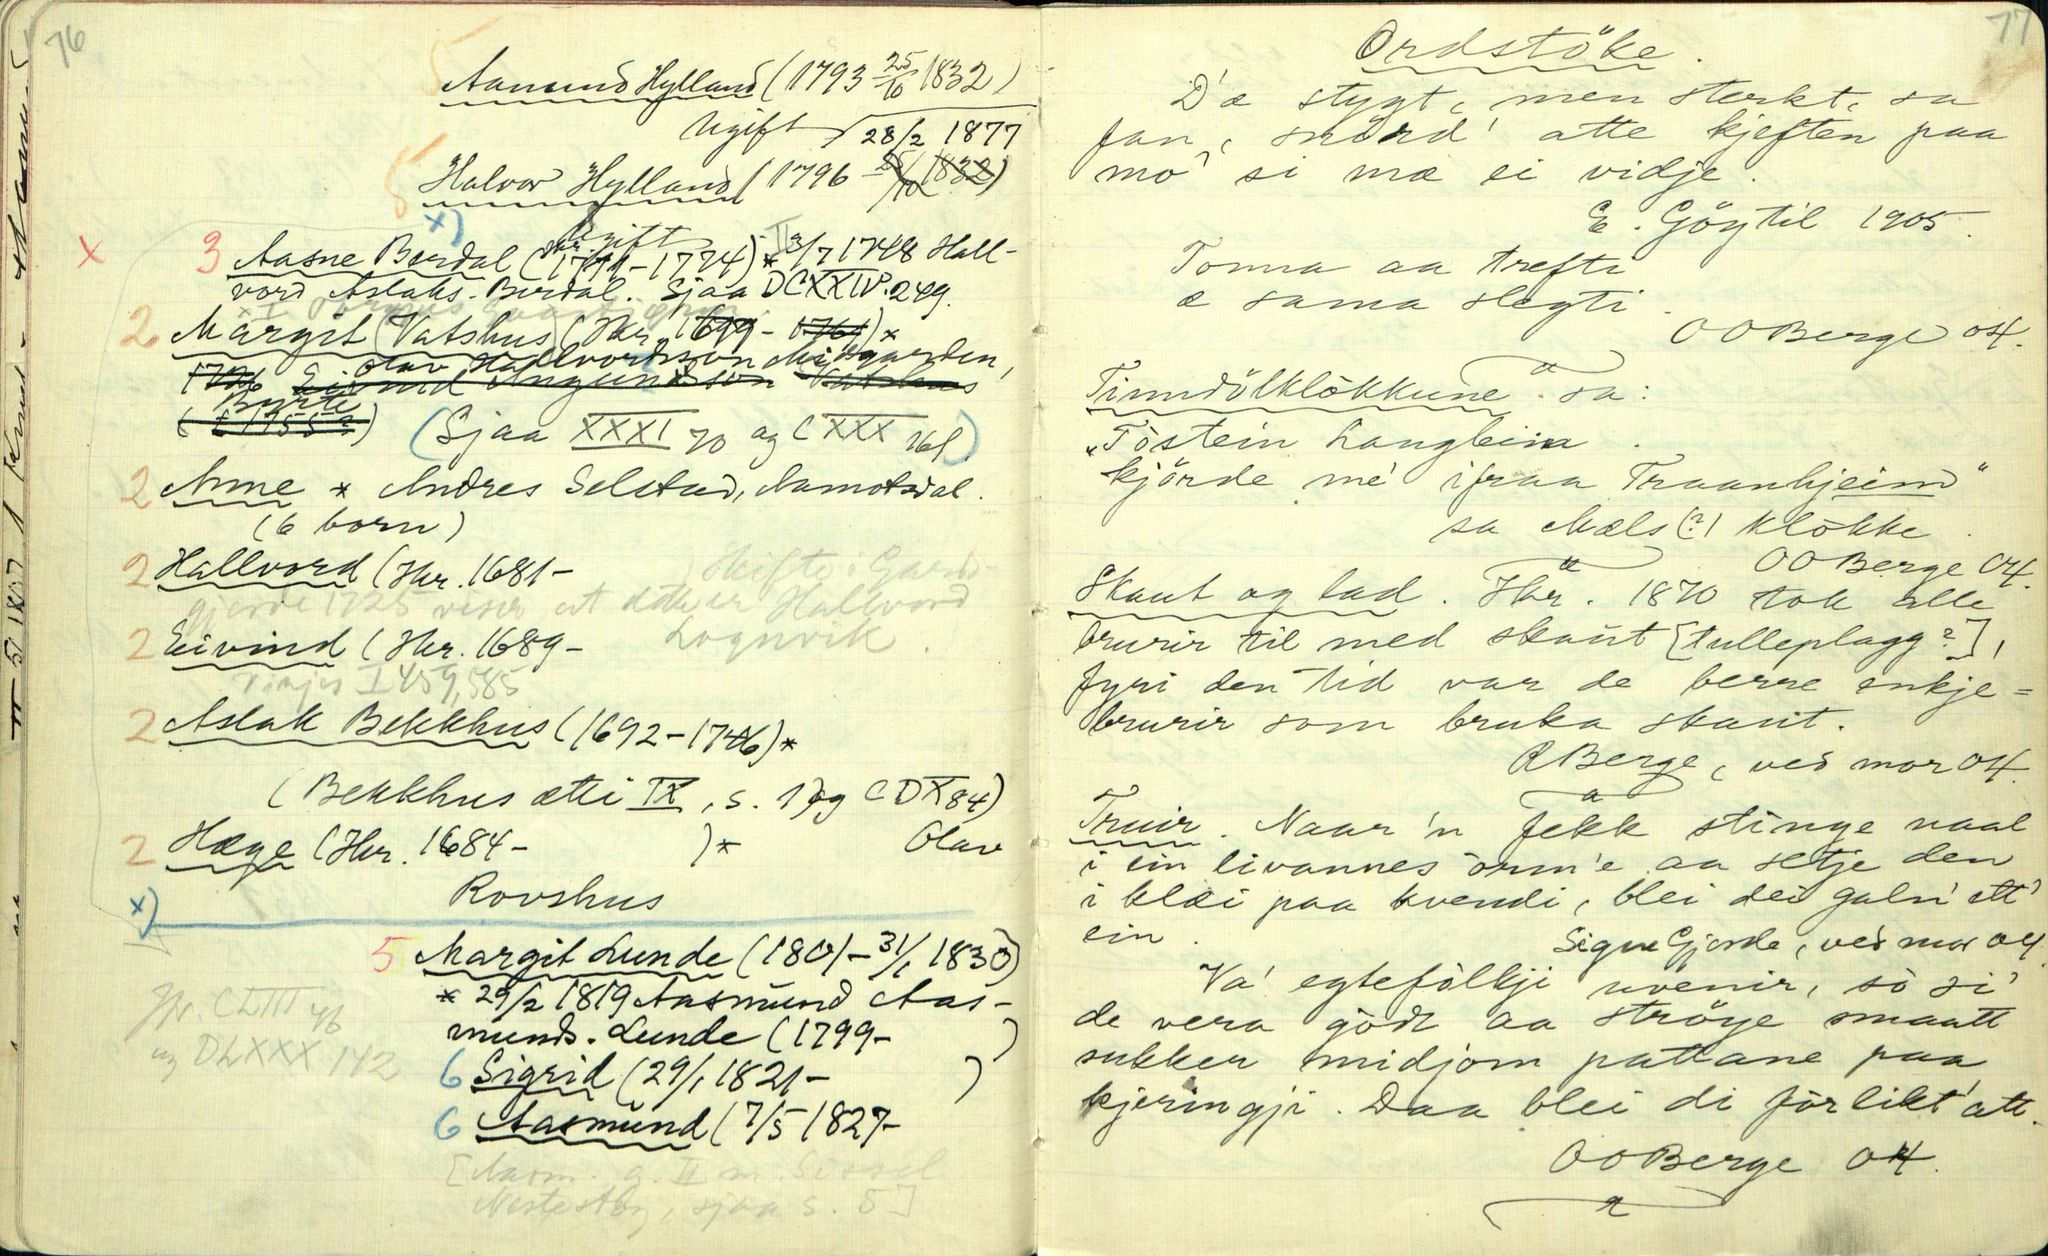 76
Aamund Hylland (1793 25/10 1832)
Ugift 28/2 1877
Halvor Hylland (1796 25/10 1832)
x)
ugift
x 3 Aasne Berdal (1771-1774) * II 3/7 1748 Hall-
vord Aslaks. Berdal. Sjaa DCXXIV. 249.
2 Margit (Vatshus) (Fkr. 1699 - 1761) *
Olav Hallvordsson Midgarden,
1726 Eivind Aagundsson Vatshus
Byrte
( 1755?)
(Sjaa XXXI 70 og CXXX 76).
2 Anne * Andres Selstad, Aamotsdal.
(6 born)
2 Hallvord (Fkr. 1681-
Skifte i Gards-
gjerde 1725 viser at dette er Hallvord
Lognvik.
2 Eivind (Fkr. 1689-
Vinjes I 459, 585
2 Aslak Bekkhus (1692-1746) *
(Bekkhus ætti IX, s. 1) og CDX 84)
2 Hæge (Fkr. 1684- ) * Olav
Rovshus
x)
5 Margit Lunde (1801-31/1 1830)
* 29/2 1819 Aasmund Aas-
munds. Lunde (1799- )
Jfr. CLIII 46
og DLXXX 142
6 Sigrid (29/1 1821- )
6 Aasmund (7/5 1827-
[Aasm. g. II m. Sissel
Nestestog, sjaa s. 5]
77
Ordstöke.
D'æ stygt, men sterkt, sa
fan, snörd' atte kjeften paa
mo' si mæ ei vidje.
E. Göytil 1905.
Tonna aa trefti
æ sama slegti.
OO Berge 04.
Tinndölklökkune sa:
"Töstein Langbein
kjörde me ifraa Traanhjeim"
sa Mæls (?) klökke.
OO Berge 04.
Skaut og lad. Fkr. 1870 tok alle
brurir til med skaut [tulleplagg?],
fyri den tid var de berre enkje=
brurir som bruka skaut.
R Berge, ved mor 04.
Truir. Naar'n fekk stinge naal
i ein livannes orm'e aa setje den
i klæi paa kvendi, blei dei galn' ett'
ein.
Signe Gjerde, ved mor 04.
Va' egtefölkji uvenir, so si'
de vera godt aa ströye smaatt
sukker midjom pattane paa
kjeringji. Daa blei di forlikt att.
OO Berge 04.